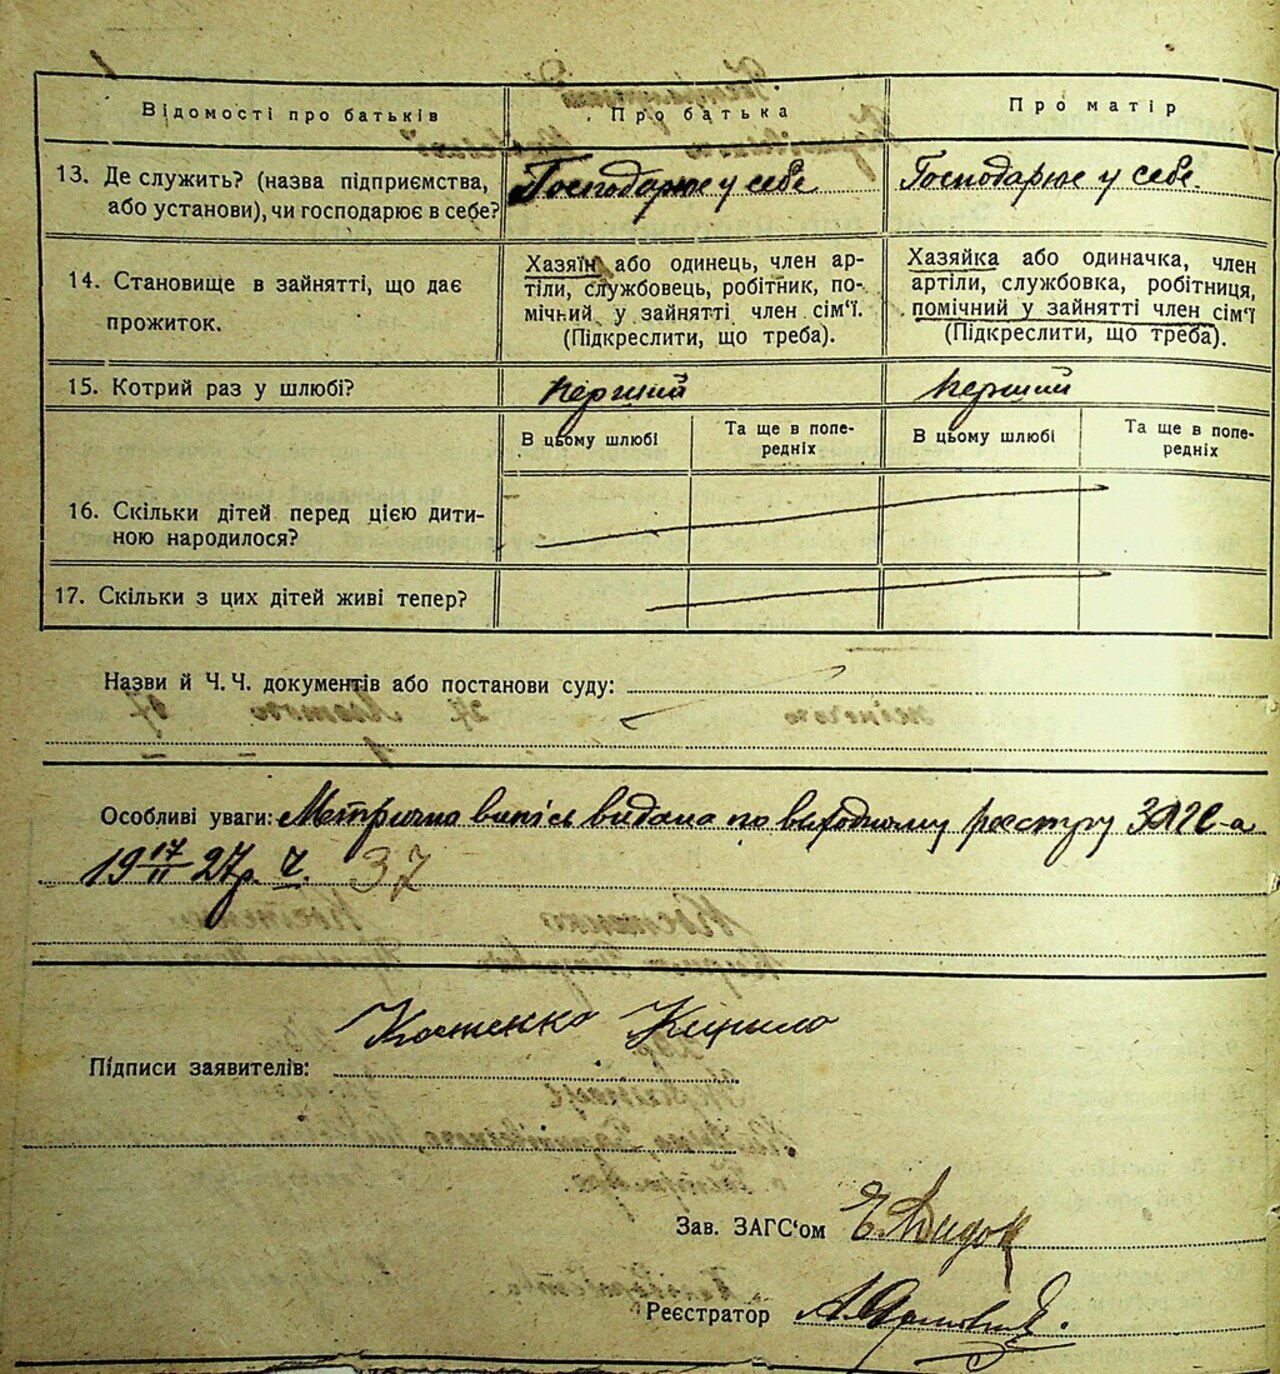 Відомості про батьків
Про батька
Про матір
13. Де служить? (назва підприємства,
або установи), чи господарює в себе?
Господарює у себе
Господарює у себе.
14. Становище в зайнятті, що дає
прожиток.
Хазяїн або одинець, член ар-
тіли, службовець, робітник, по-
мічний у зайнятті член сім'ї.
(Підкреслити, що треба).
Хазяйка або одиначка, член
артіли, службовка, робітниця,
помічний у зайнятті член сім'ї
(Підкреслити, що треба).
15. Котрий раз у шлюбі?
перший
перший
В цьому шлюбі
Та ще в попе-
редніх
В цьому шлюбі
Та ще в попе-
редніх
16. Скільки дітей перед цією дити-
ною народилося?
17. Скільки з цих дітей живі тепер?
Назви й Ч. Ч. документів або постанови суду:
Особливі уваги: Метрична випісь видана по виходному реєстру ЗАГС-а
19 17/II 27 р. ч. 37
Костенко Кирило
Підписи заявителів:
Зав. ЗАГС'ом
Реєстратор